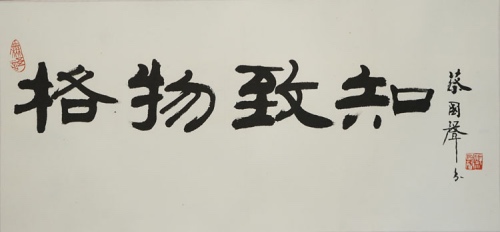 格物致知
蔡國聲書